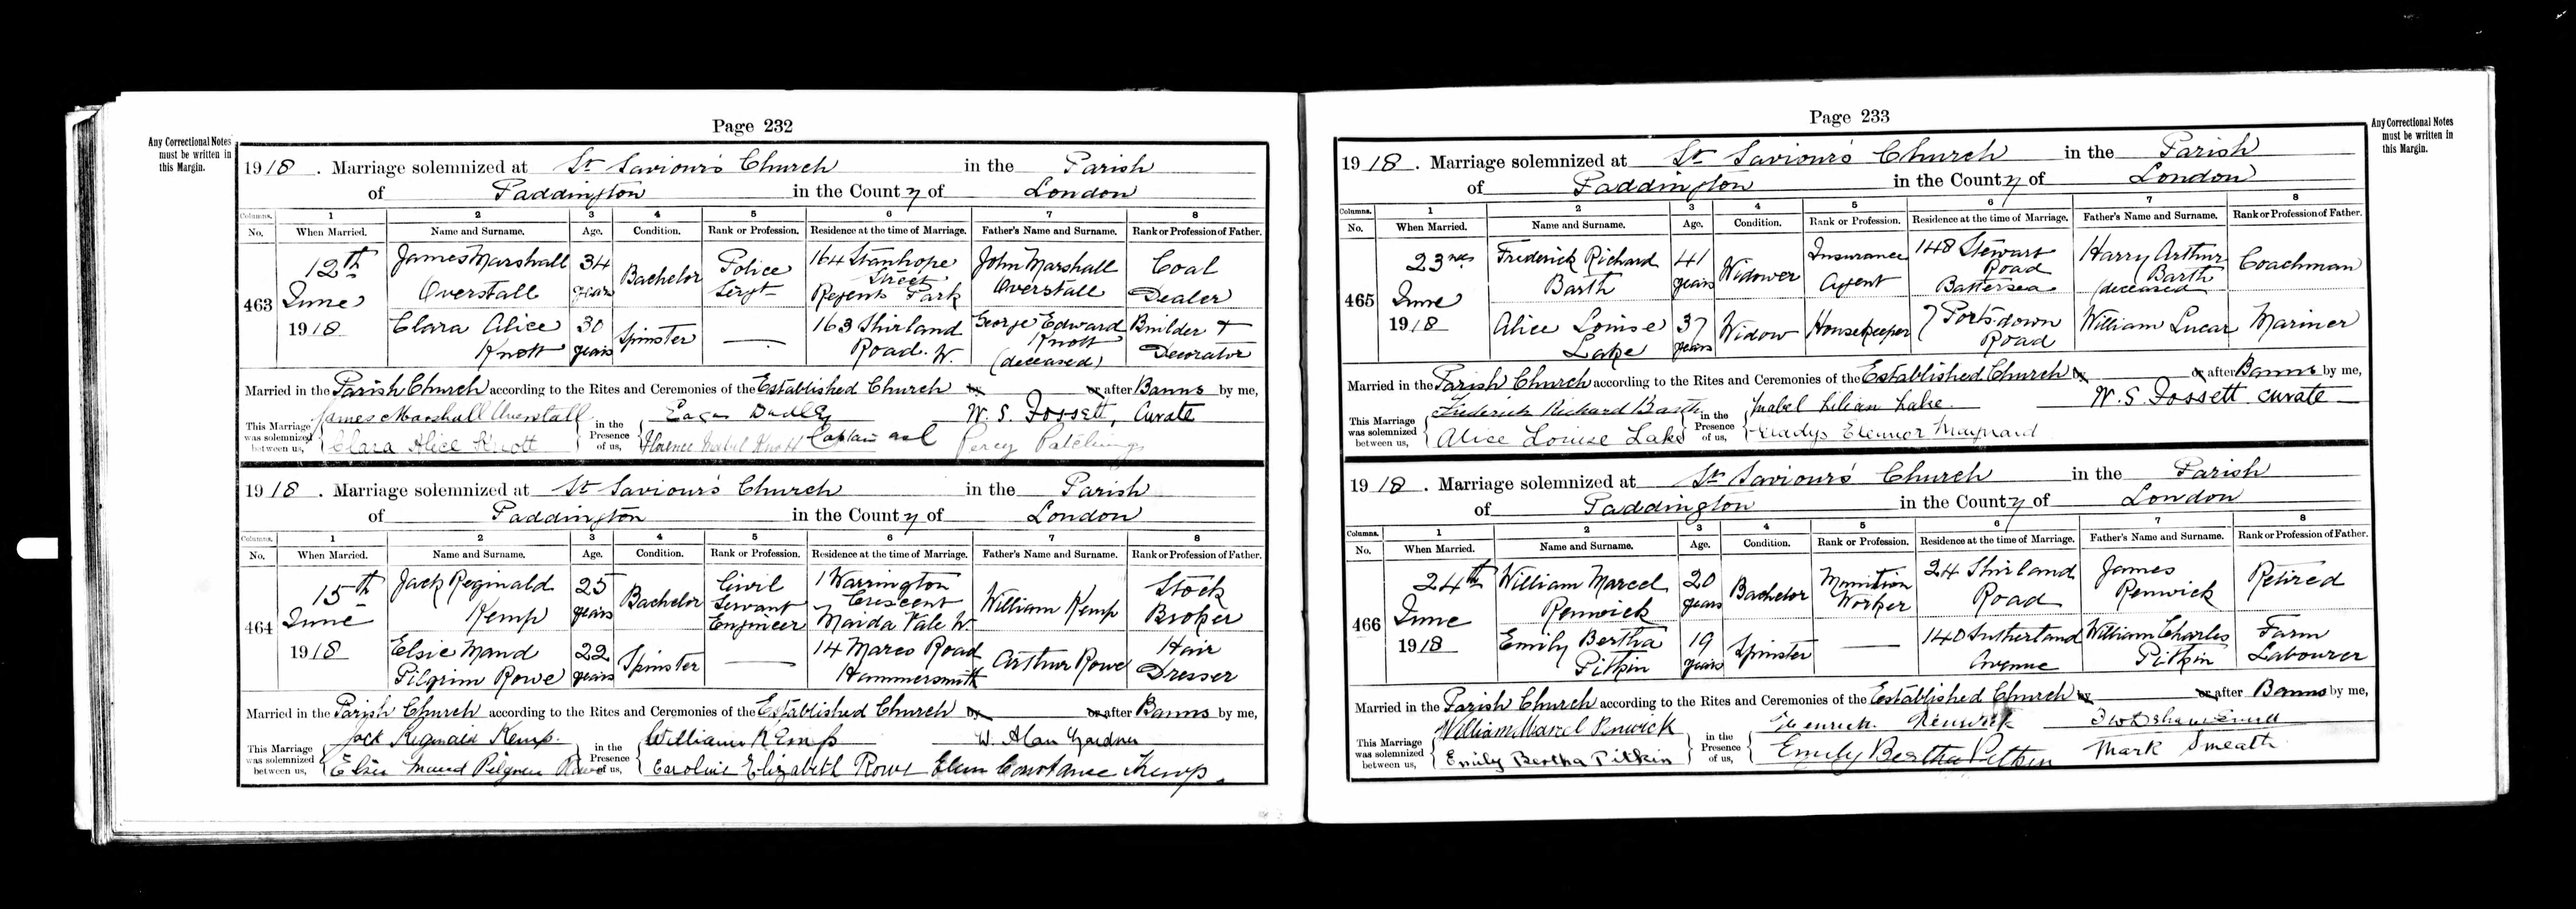 Page 232
Any Correctional Notes
must be written in
this Margin.
1918. Marriage solemnized at St Saviour's Church in the Parish
of Paddington in the County of London
Columns. 1 2 3 4 5 6 7 8
No. When Married. Name and Surname. Age. Condition. Rank or Profession. Residence at the time of Marriage. Father's Name and Surname. Rank or Profession of Father.
463
12th June 1918
James Marshall Overstall
34 years
Bachelor
Police Sergt
164 Stanhope Street Regents Park
John Marshall Overstall
Coal Dealer
Clara Alice Knott
30 years
Spinster
—
163 Shirland Road. W.
George Edward Knott (deceased)
Builder & Decorator
Married in the Parish Church according to the Rites and Ceremonies of the Established Church by or after Banns by me,
James Marshall Overstall W. S. Fossett, Curate
This Marriage was solemnized between us,
Clara Alice Knott
in the Presence of us,
Dudley
Florence Mabel Knott Captain Percy Patching
1918. Marriage solemnized at St Saviour's Church in the Parish
of Paddington in the County of London
Columns. 1 2 3 4 5 6 7 8
No. When Married. Name and Surname. Age. Condition. Rank or Profession. Residence at the time of Marriage. Father's Name and Surname. Rank or Profession of Father.
464
15th June 1918
Jack Reginald Kemp
25 years
Bachelor
Civil Servant Engineer
1 Warrington Crescent Maida Vale W.
William Kemp
Stock Broker
Elsie Maud Pilgrim Rowe
22 years
Spinster
—
14 Marco Road Hammersmith
Arthur Rowe
Hair Dresser
Married in the Parish Church according to the Rites and Ceremonies of the Established Church by or after Banns by me,
Jack Reginald Kemp William Kemp W. Alan Gardner
This Marriage was solemnized between us,
Elsie Maud Pilgrim Rowe
in the Presence of us,
Caroline Elizabeth Rowe Constance Kemp.
Page 233
Any Correctional Notes
must be written in
this Margin.
1918. Marriage solemnized at St Saviour's Church in the Parish
of Paddington in the County of London
Columns. 1 2 3 4 5 6 7 8
No. When Married. Name and Surname. Age. Condition. Rank or Profession. Residence at the time of Marriage. Father's Name and Surname. Rank or Profession of Father.
465
23rd June 1918
Frederick Richard Barth
41 years
Widower
Insurance Agent
148 Stewart Road Battersea
Harry Arthur Barth (deceased)
Coachman
Alice Louise Lake
37 years
Widow
Housekeeper
7 Portsdown Road
William Lucar
Mariner
Married in the Parish Church according to the Rites and Ceremonies of the Established Church by or after Banns by me,
Frederick Richard Barth Mabel Lilian Lake W. S. Fossett curate
This Marriage was solemnized between us,
Alice Louise Lake
in the Presence of us,
Gladys Eleanor Maynard
1918. Marriage solemnized at St Saviour's Church in the Parish
of Paddington in the County of London
Columns. 1 2 3 4 5 6 7 8
No. When Married. Name and Surname. Age. Condition. Rank or Profession. Residence at the time of Marriage. Father's Name and Surname. Rank or Profession of Father.
466
24th June 1918
William Marcel Renwick
20 years
Bachelor
Munition Worker
24 Shirland Road
James Renwick
Retired
Emily Bertha Pitkin
19 years
Spinster
—
140 Sutherland Avenue
William Charles Pitkin
Farm Labourer
Married in the Parish Church according to the Rites and Ceremonies of the Established Church by or after Banns by me,
William Marcel Renwick Renwick
This Marriage was solemnized between us,
Emily Bertha Pitkin
in the Presence of us,
Emily Bertha Pitkin Mark Smeath